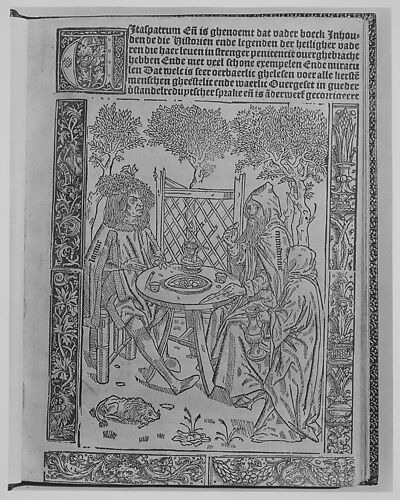 Vitaspatrum Eñ is ghenoemt dat vader boeck Inhou
den de die Historien ende legenden der heiligher vade
ren die haer leuen in strenger penitencie ouerghebracht
hebben Ende met veel schone exempelen Ende miracu
len Dat welc is seer oerbaerlic ghelesen voer alle kersten
menschen gheestelic ende waerlic Ouergeset in gueder
verstandelre duytscher sprake eñ is ãderwerf gecorrigeert